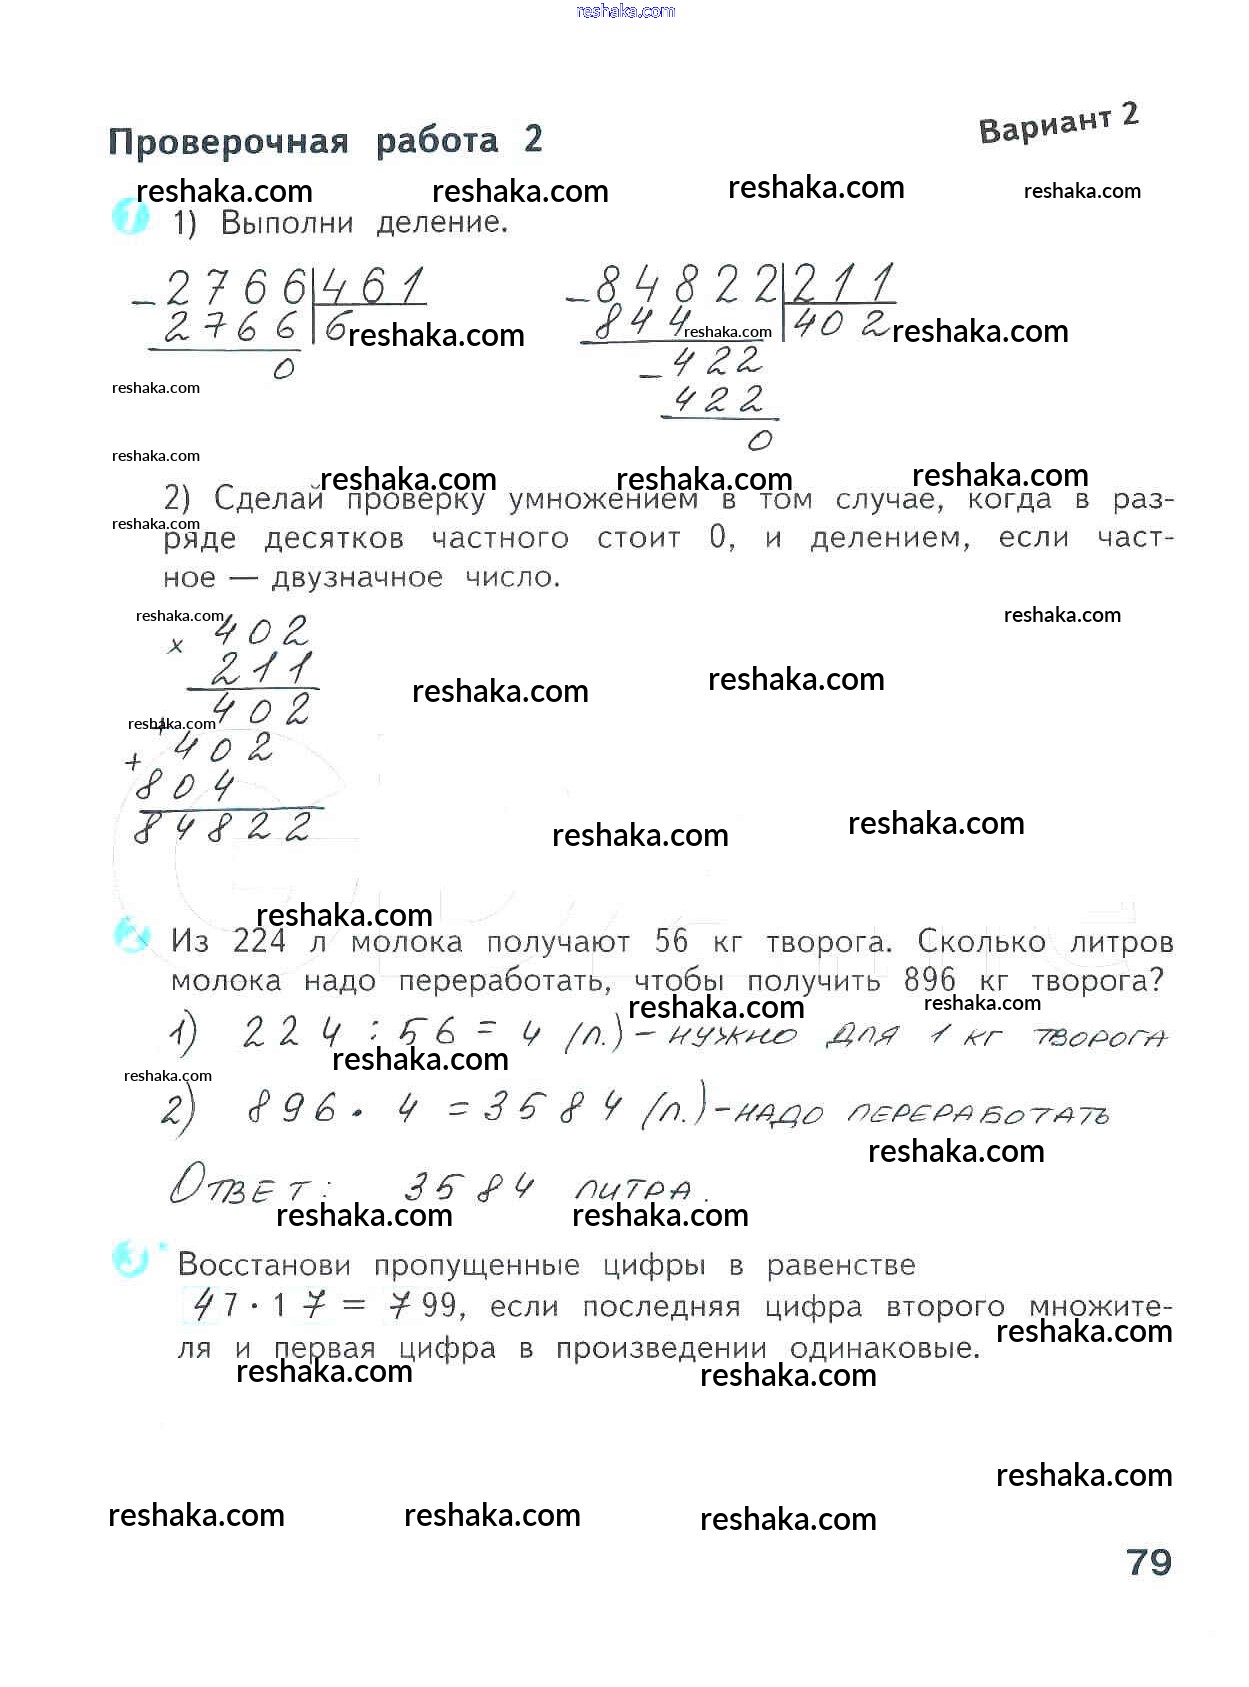 reshaka.com
Проверочная работа 2
Вариант 2
reshaka.com reshaka.com reshaka.com reshaka.com
1 1) Выполни деление.
- 2766 461 - 84822 211
2766 6 reshaka.com 844 reshaka.com 402 reshaka.com
0 - 422
reshaka.com
422
0
reshaka.com
reshaka.com reshaka.com reshaka.com
2) Сделай проверку умножением в том случае, когда в раз-
reshaka.com
ряде десятков частного стоит 0, и делением, если част-
ное — двузначное число.
reshaka.com reshaka.com
x 402
211
reshaka.com reshaka.com
402
reshaka.com
+
+ 402
804
84822
reshaka.com reshaka.com
reshaka.com
2 Из 224 л молока получают 56 кг творога. Сколько литров
молока надо переработать, чтобы получить 896 кг творога?
reshaka.com reshaka.com
1) 224 : 56 = 4 (л.) - нужно для 1 кг творога
reshaka.com
reshaka.com
2) 896 · 4 = 3584 (л.) - надо переработать
reshaka.com
Ответ: 3584 литра.
reshaka.com reshaka.com
3* Восстанови пропущенные цифры в равенстве
47 · 17 = 799, если последняя цифра второго множите-
reshaka.com
ля и первая цифра в произведении одинаковые.
reshaka.com reshaka.com
reshaka.com
reshaka.com reshaka.com reshaka.com
79